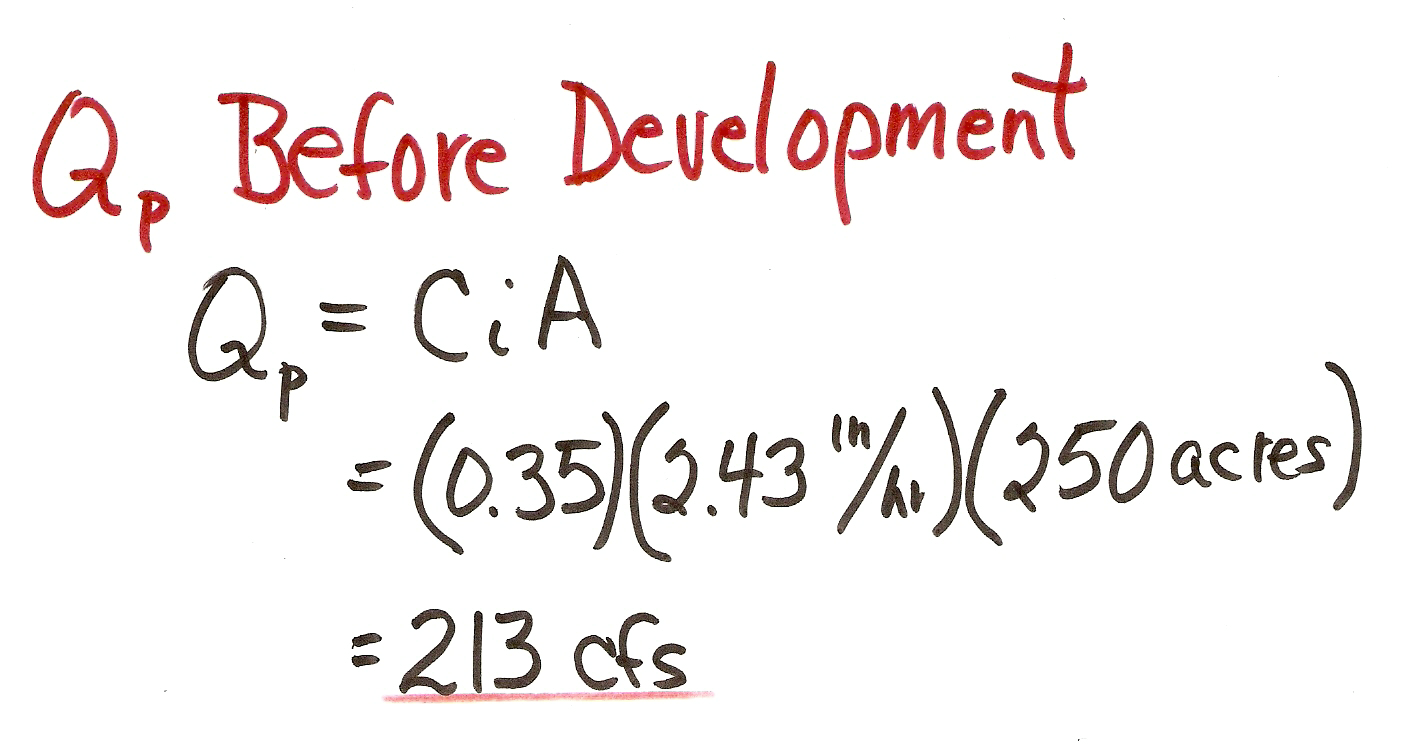 Qp Before Development
Qp = CiA
= (0.35)(2.43 in/hr)(250 acres)
= 213 cfs